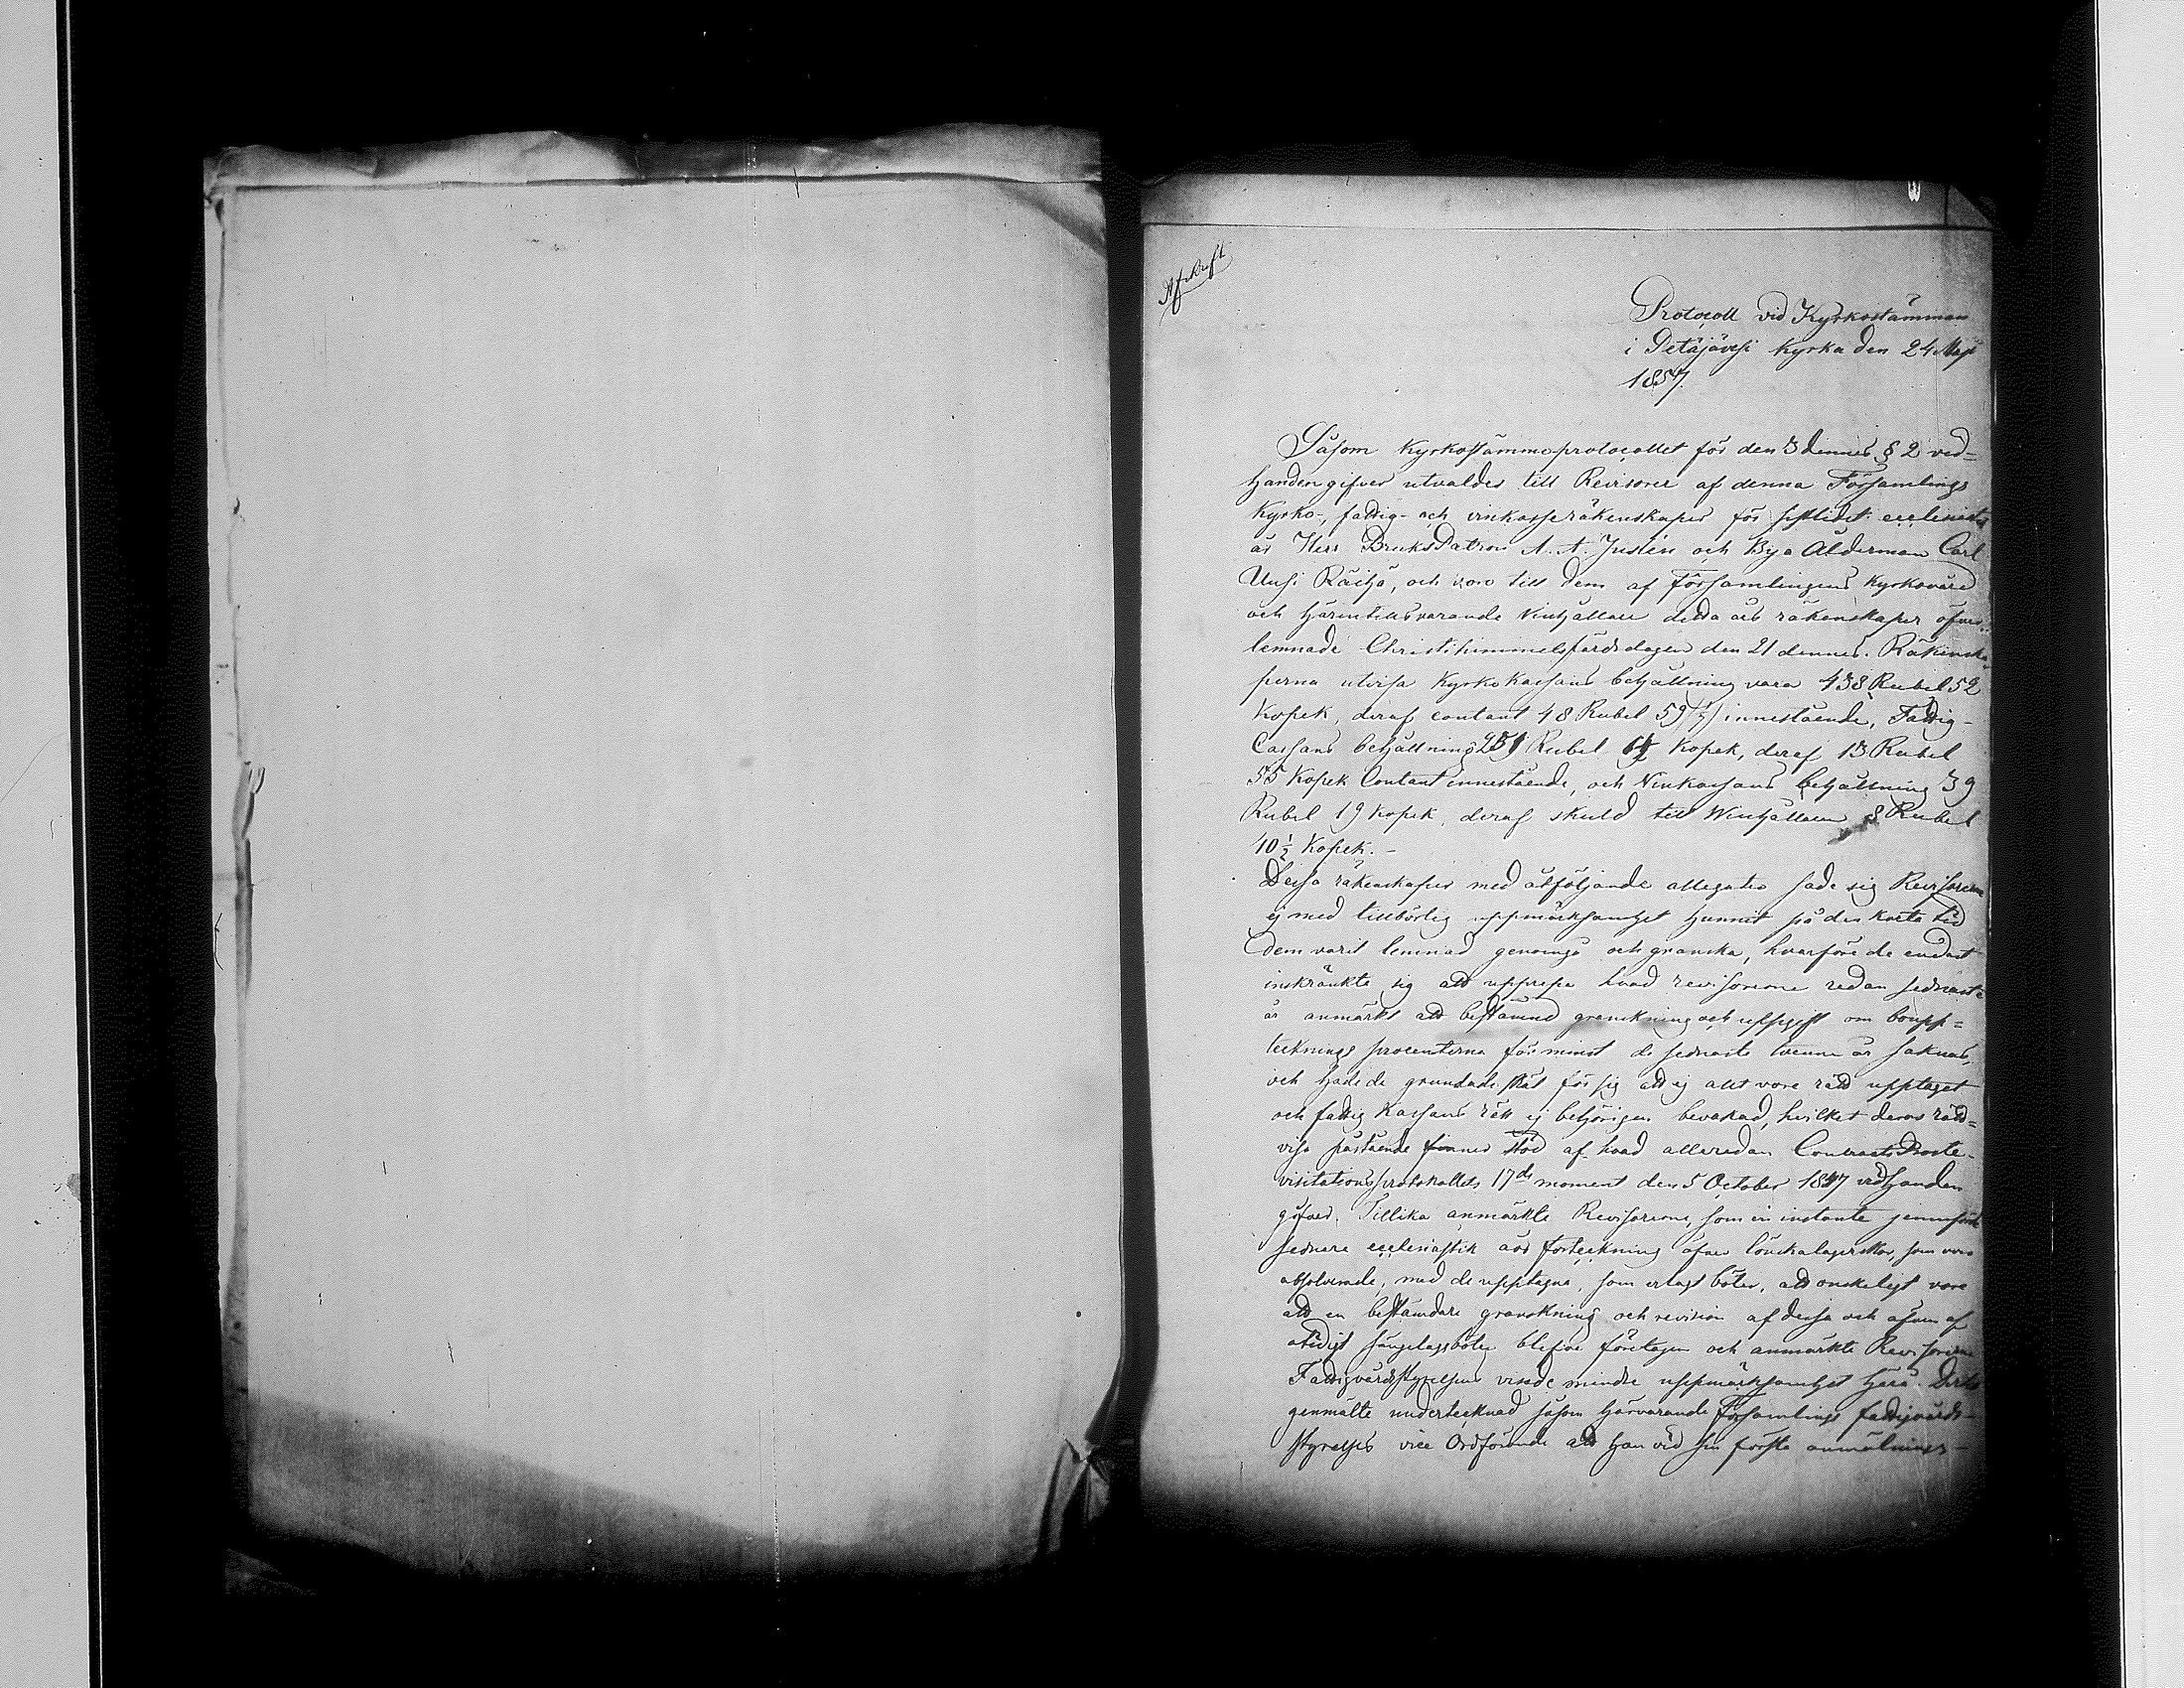 Afskrift
Protocoll vid Kyrkostämman
i Petäjävesi Kyrka den 24 Maji
1857.
Såsom Kyrkostämmoprotocollet för den 3 dennes § 2 ved=
handengifver utvaldes till Revisorer af denna Församlings
Kyrko-, fattig- och vinkasse räkenskaper för sistlidet ecclesiastik
år Herr BruksPatron A. A. Juslén och Bya Ålderman Carl
Uusi Räihä, och voro till dem af församlingens Kyrkovärd
och härintills varande Vinhållare detta års räkenskaper öfver-
lemnade Christihimmelsfärdsdagen den 21 dennes. Räkenska-
perna utvisa Kyrko Kassans behållning vara 438 Rubel 52
Kopek, deraf contant 48 Rubel 59 1/2 innestående, Fattig-
Cassans behållning 251 Rubel Kopek, deraf 13 Rubel
55 Kopek Contant innestående, och Vinkassans behållning 39
Rubel 19 Kopek, deraf skuld till Winhållaren 8 Rubel
10 1/2 Kopek. -
Dessa räkenskaper med åtföljande allegater sade sig Revisorerne
ej med tillbörlig uppmärksamhet hunnit på den korta tid
dem varit lemnad genomgå och granska, hvarföre de endast
inskränkte sig att upprepa hvad revisorerne redan sednaste
år anmärkt att bestämd granskning och uppgift om boupp=
tecknings procenterna för minst de sednaste tvenne år saknas,
och hade de grundade skäl för sig att ej allt vore rätt upptaget
och fattig Kassans rätt ej behörigen bevakad, hvilket deras rätt=
visa påstående finner stöd af hvad allaredan ContractsProste-
visitationsprotokollets 17de moment den 5 October 1847 vidhanden
gifver. Tillika anmärkte Revisorerne, som in instante jemnförde
sednare ecclesiastik års förteckning öfver lönskalägerskor, som voro
absolverade, med de upptagne, som erlagt böter, att önskeligt vore
att en bestämdare granskning och revision af dessa och äfven af
otidigt sängelagsböter blefve företagen och anmärkte Revisorerne
Fattigvårdsstyrelsens visade mindre uppmärksamhet härå. Dertill
genmälte undertecknad såsom härvarande Församlings fattigvårds-
styrelses vice Ordförande att han vid sin första anmälnings-